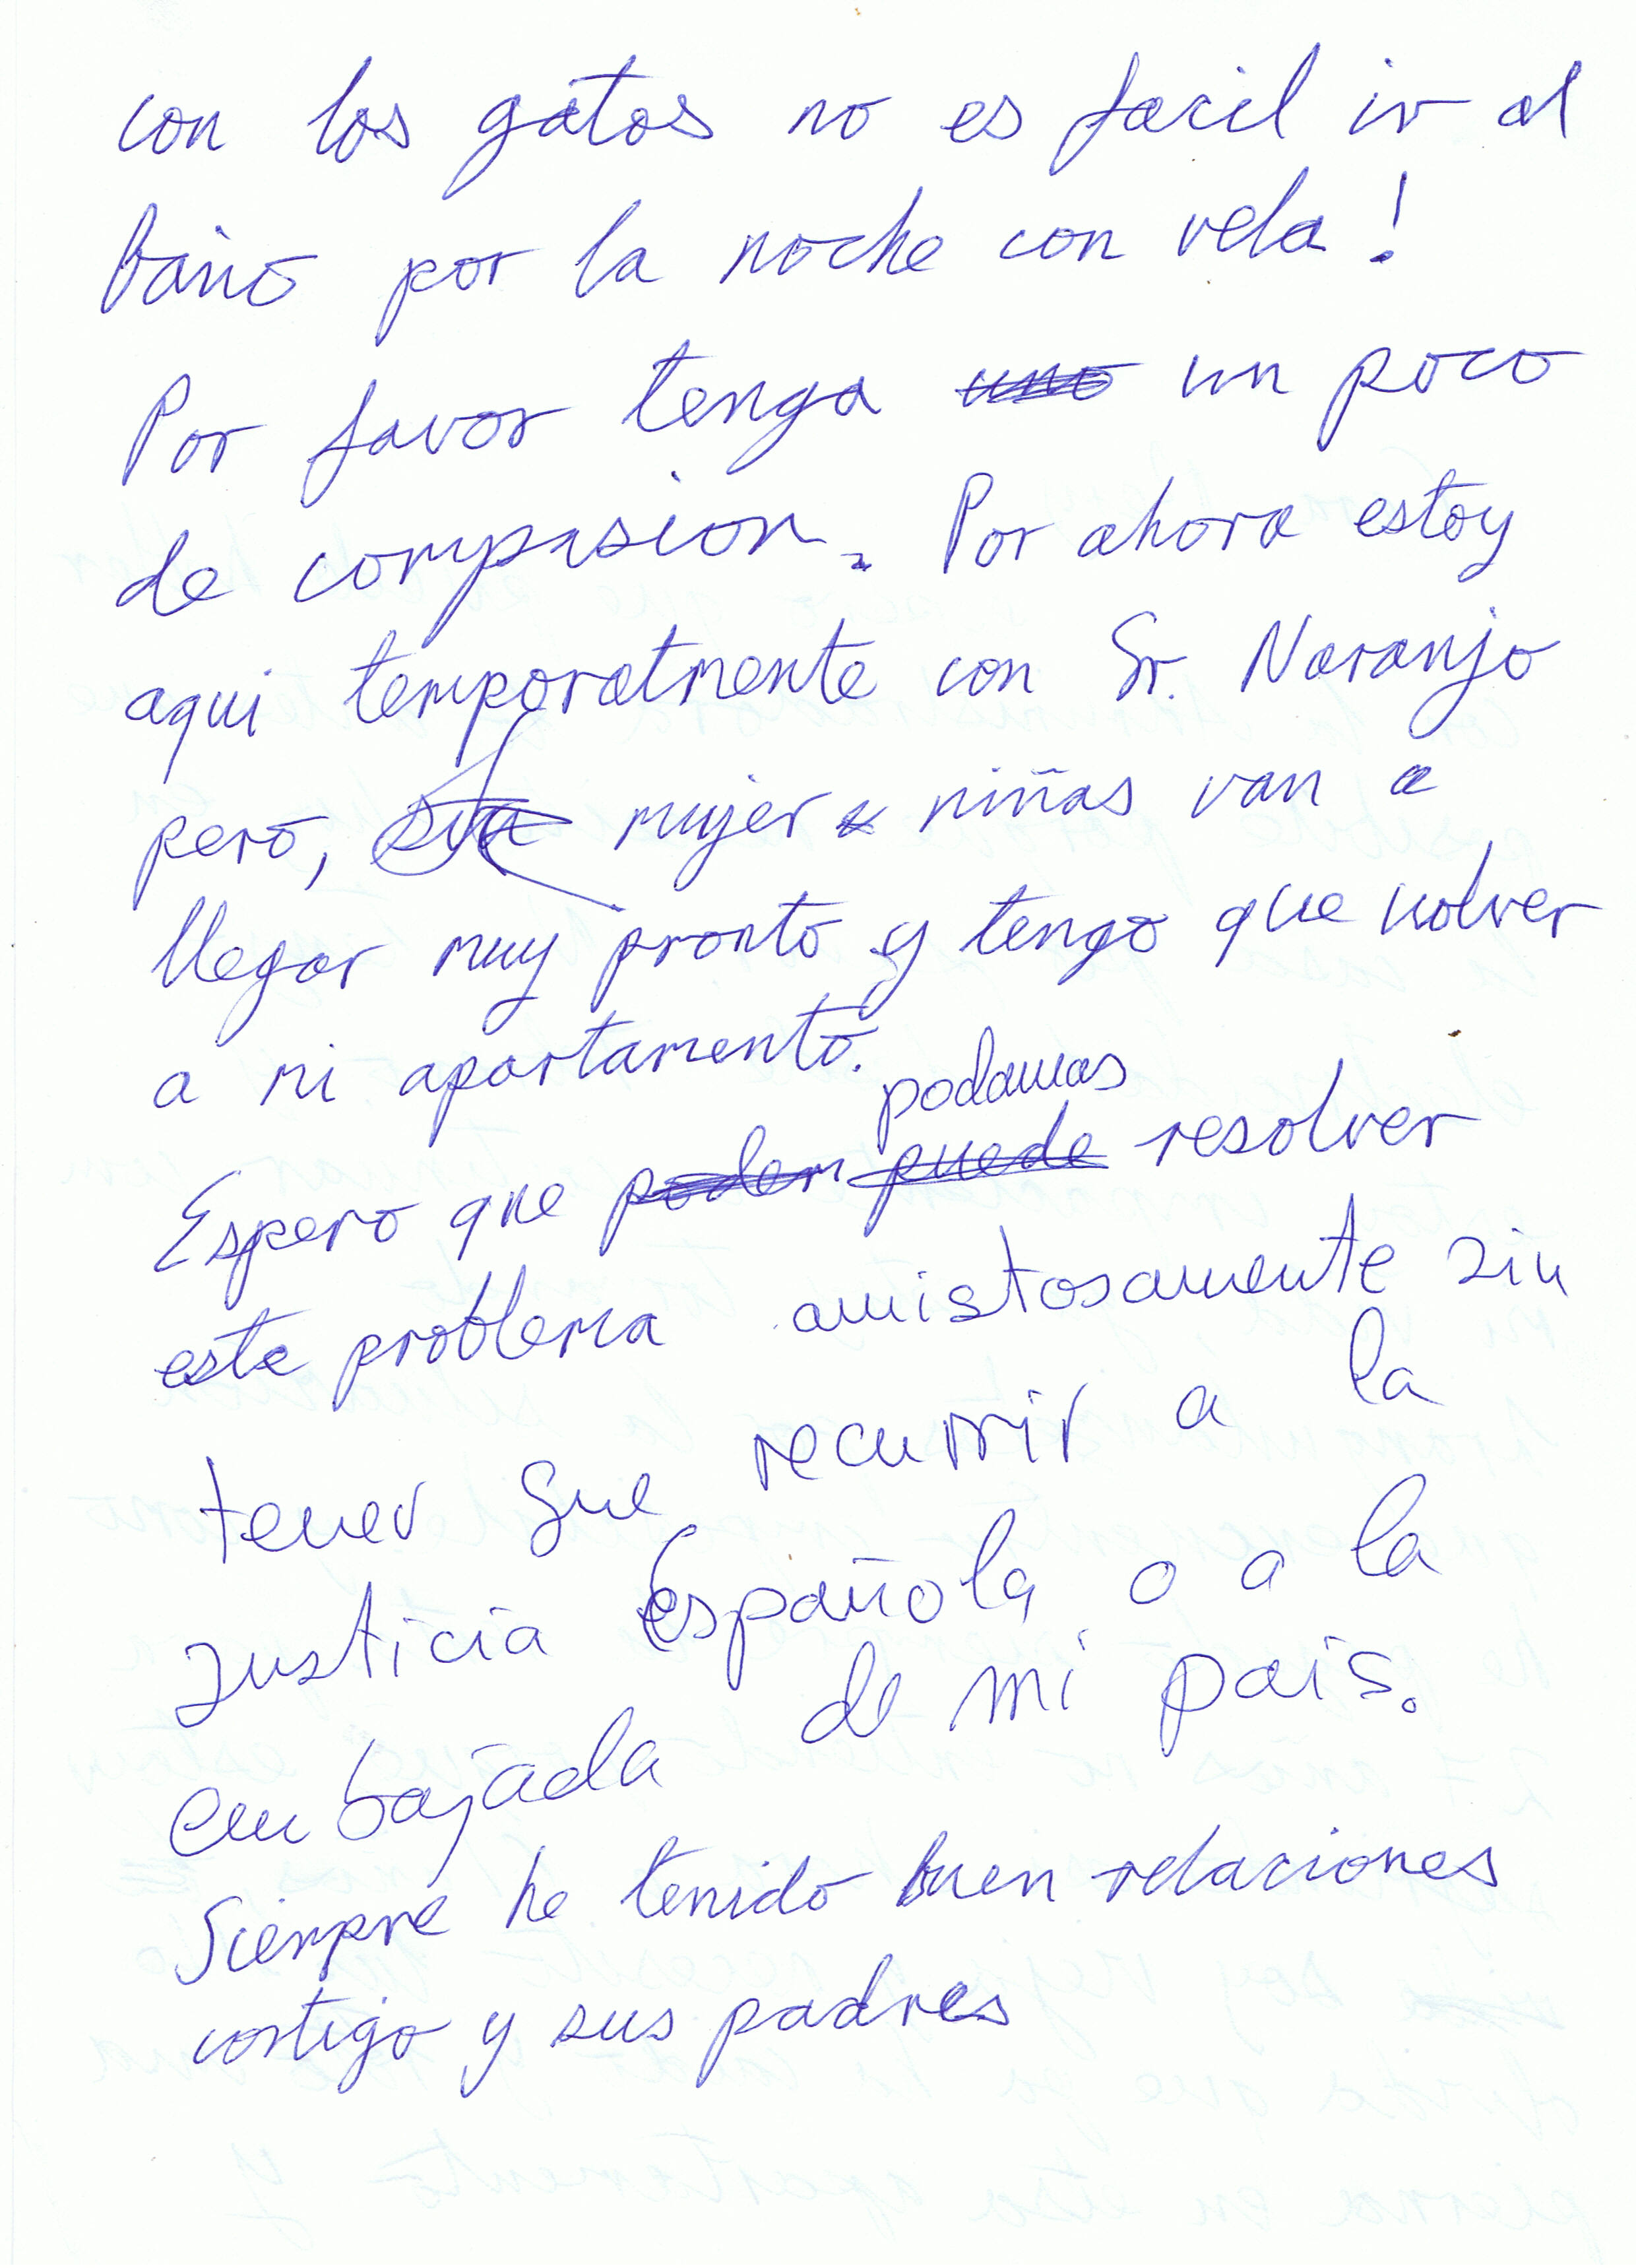 con los gatos no es facil ir al
baño por la noche con vela!
Por favor tenga uno un poco
de compasion. Por ahora estoy
aqui temporalmente con Sr. Naranjo
pero, mujer niñas van a
llegar muy pronto y tengo que volver
a mi apartamento.
podamos
Espero que poder puede resolver
este problema amistosamente sin
tener que recurrir a la
Justicia Española o a la
embajada de mi pais.
Siempre he tenido buen relaciones
contigo y sus padres